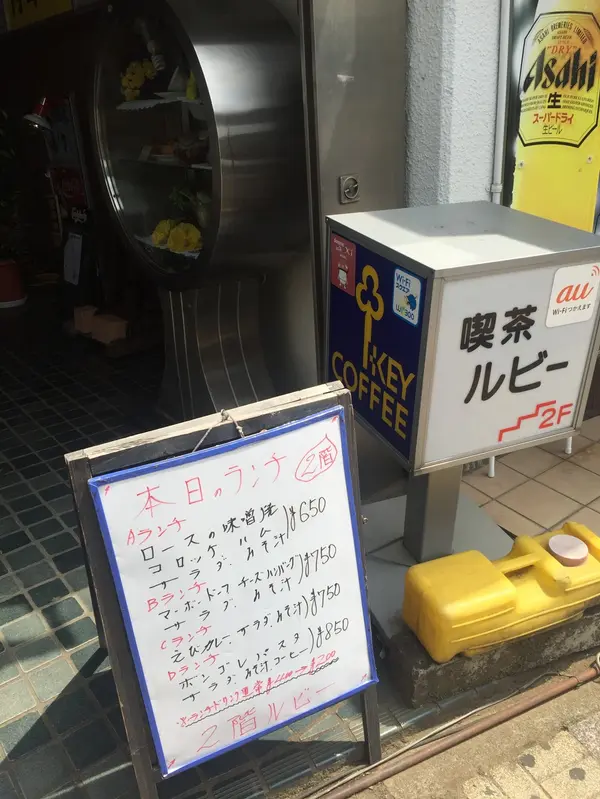 ASAHI BREWERIES LIMITED
"DRY"
Asahi
生
スーパードライ
生ビール
Wi-Fi
スクエア
Wi2 300
KEY
COFFEE
au
Wi-Fiつかえます
喫茶
ルビー
2F
本日のランチ 2階
Aランチ
ロースの味噌焼
コロッケ ハム
サラダ、みそ汁 )¥650
Bランチ
マーボドーフ チーズハンバーグ
サラダ、みそ汁 )¥750
Cランチ
えびカレー、サラダ、みそ汁)¥750
Dランチ
ボンゴレパスタ
サラダ、みそ汁、コーヒー)¥850
※ランチドリンク
→¥200
2階ルビー